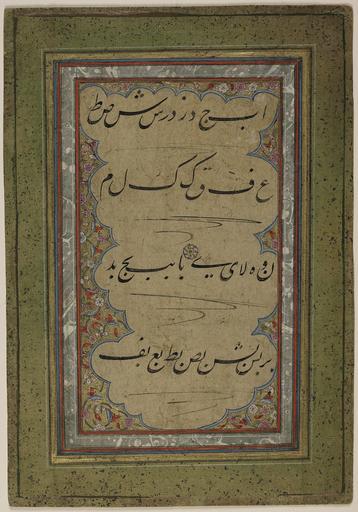 ا ب ج د ر ر س ش ص ط
ع ف ق ک ک ل م
ن و ه لا ی ے با بب بج بد
بر بس بش بص بط بع بف